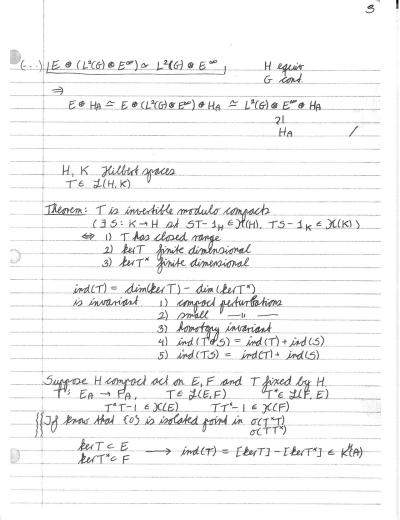 3
(...) E ⊕ (L²(G) ⊗ E^∞) ≃ L²(G) ⊗ E^∞, H equiv
G cont.
⇒
E ⊕ H_A ≃ E ⊕ (L²(G) ⊗ E^∞) ⊕ H_A ≃ L²(G) ⊗ E^∞ ⊕ H_A
≀|
H_A /
H, K Hilbert spaces
T ∈ L(H, K)
Theorem: T is invertible modulo compacts
(∃ S: K → H st ST - 1_H ∈ K(H), TS - 1_K ∈ K(K))
⇔ 1) T has closed range
2) ker T finite dimensional
3) ker T* finite dimensional
ind(T) = dim(ker T) - dim(ker T*)
is invariant 1) compact perturbations
2) small —"—
3) homotopy invariant
4) ind(T⊕S) = ind(T) + ind(S)
5) ind(TS) = ind(T) + ind(S)
Suppose H compact act on E, F and T fixed by H.
T: E_A → F_A, T ∈ L(E,F) T* ∈ L(F, E)
T*T-1 ∈ K(E) TT*-1 ∈ K(F)
{{If know that {0} is isolated point in σ(T*T)
σ(TT*)
ker T ⊂ E
ker T* ⊂ F ⟶ ind(T) = [ker T] - [ker T*] ∈ K^H(A)